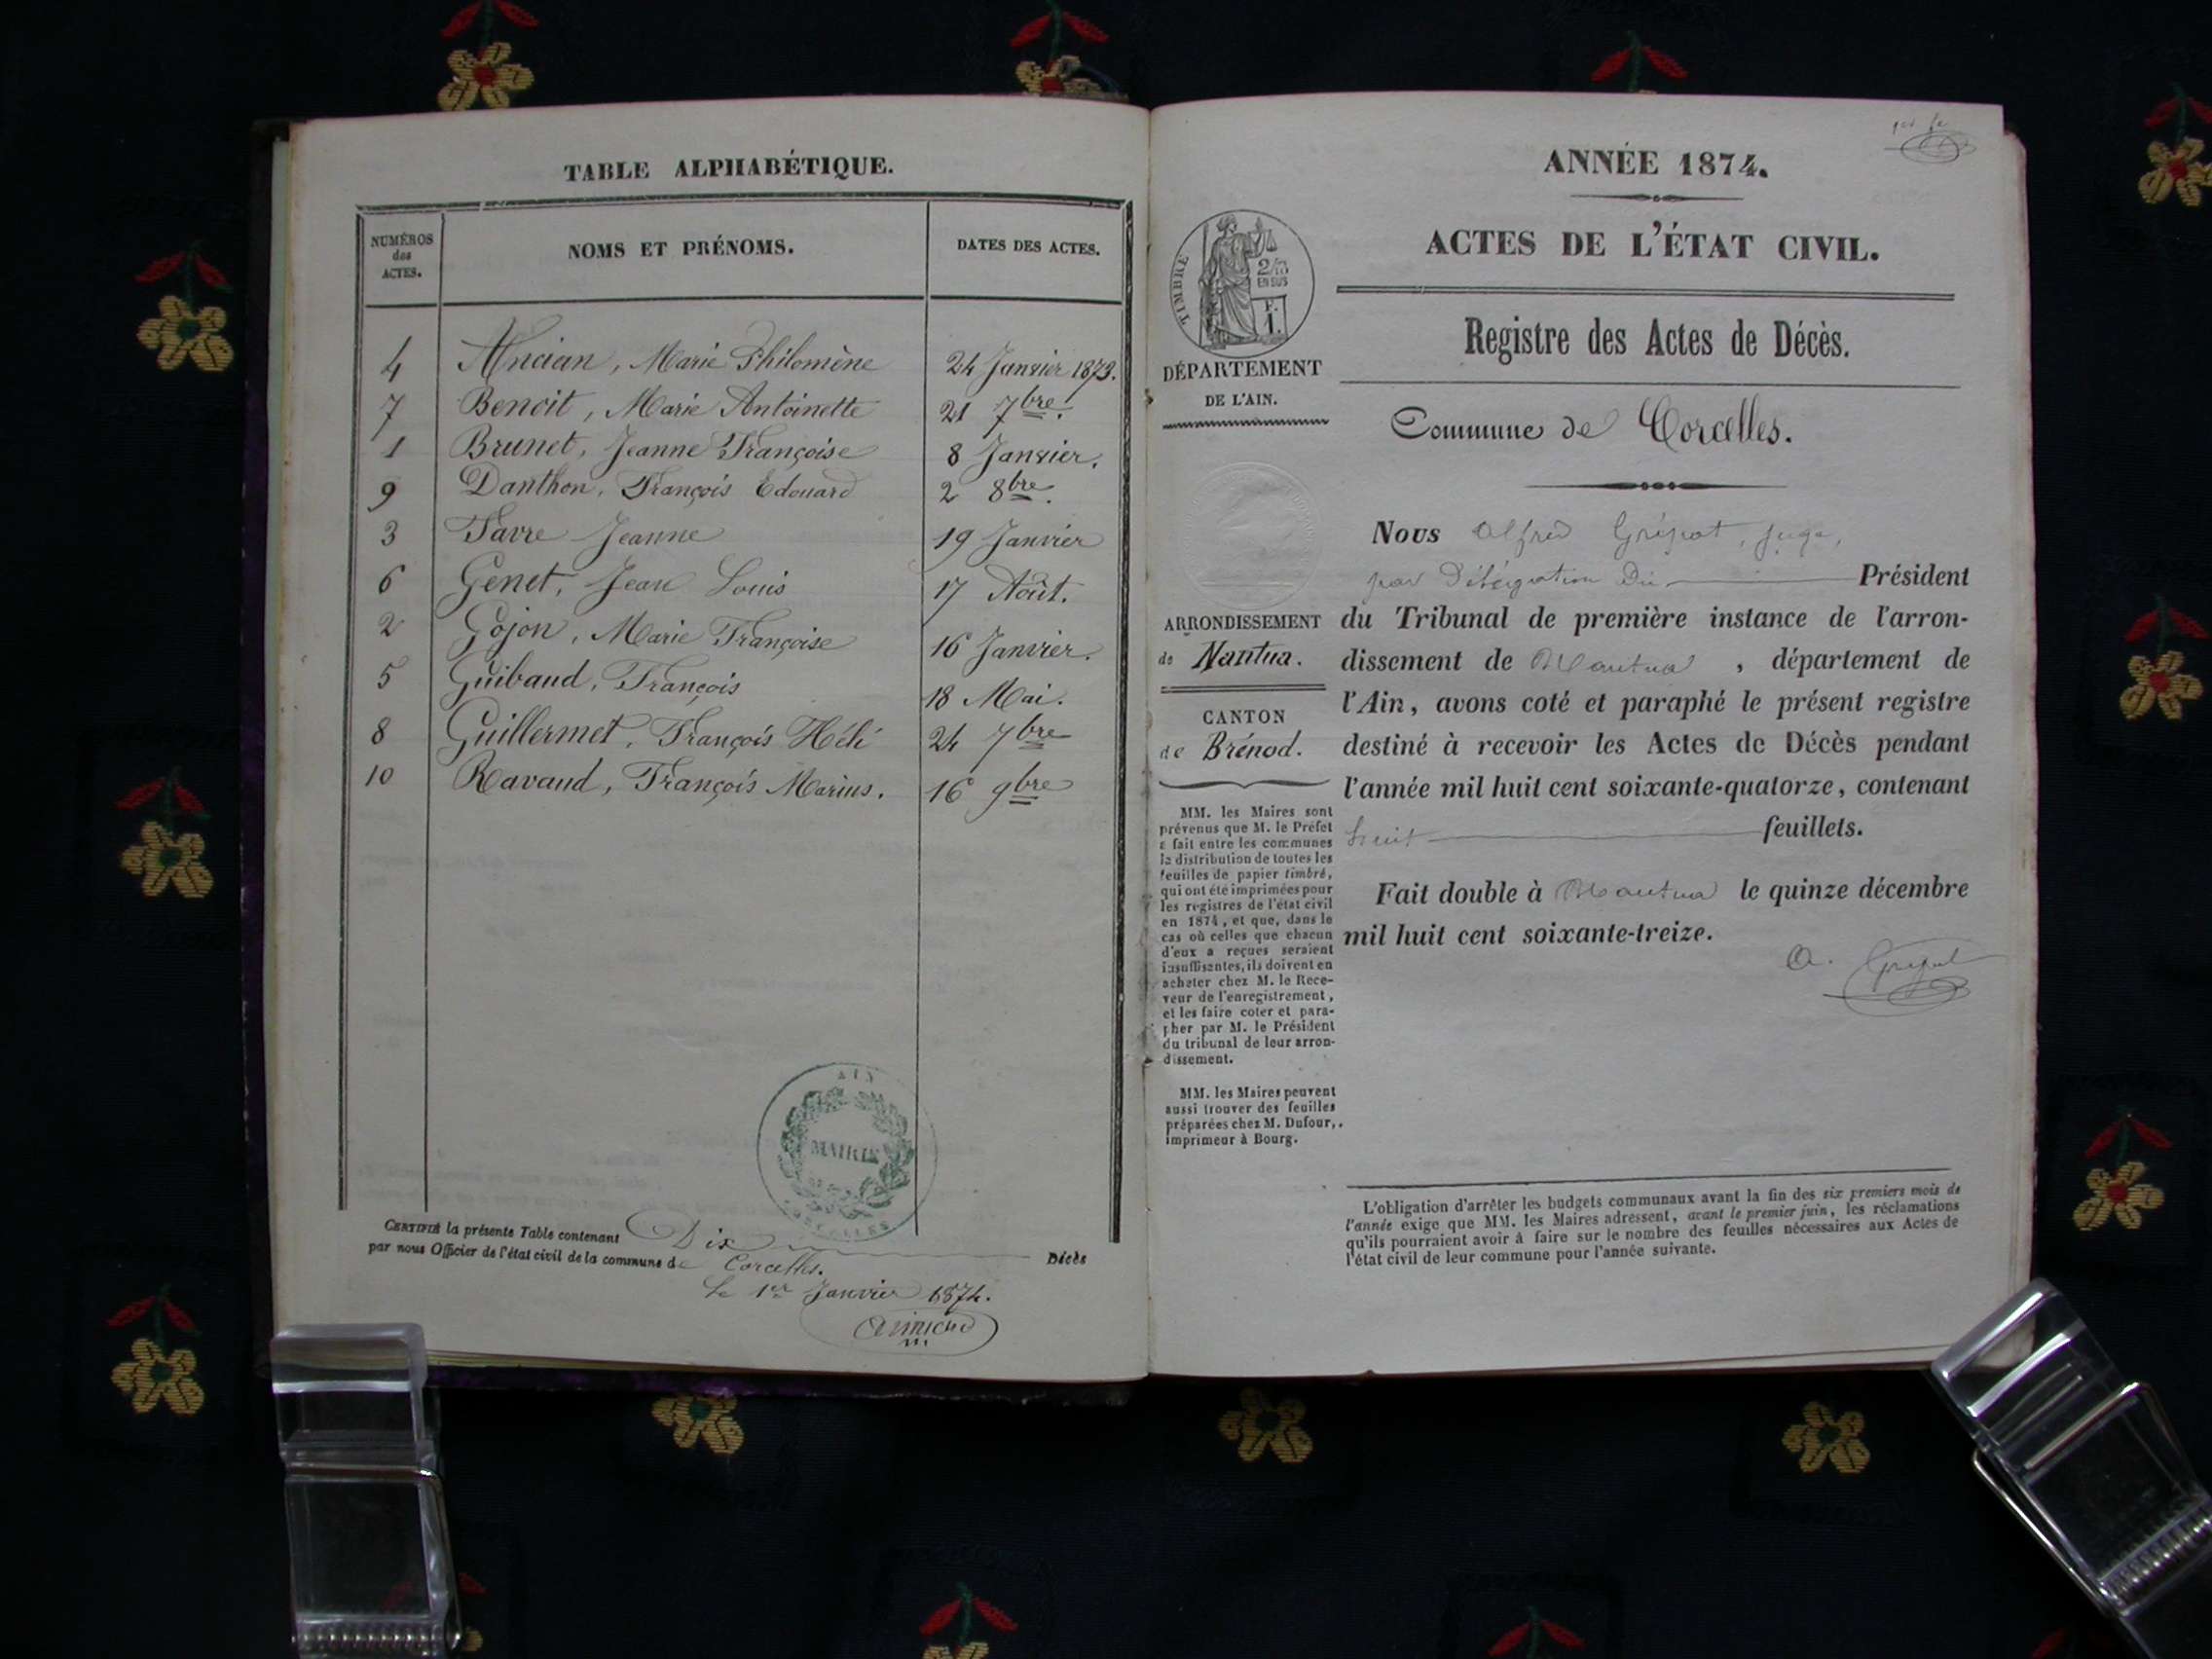 TABLE ALPHABÉTIQUE.
NUMÉROS des ACTES. NOMS ET PRÉNOMS. DATES DES ACTES.
4 Ancian, Marie Philomène 24 Janvier 1873.
7 Benoit, Marie Antoinette 21 7bre.
1 Brunet, Jeanne Françoise 8 Janvier.
9 Danthon, François Edouard 2 8bre.
3 Favre Jeanne 19 Janvier
6 Genet, Jean Louis 17 Août.
2 Gojon, Marie Françoise 16 Janvier.
5 Guibaud, François 18 Mai.
8 Guillermet, François Héli 24 7bre
10 Ravaud, François Marius. 16 9bre
AIN
MAIRIE
CORCELLES
CERTIFIÉ la présente Table contenant Dix Décès
par nous Officier de l'état civil de la commune de Corcelles.
Le 1er Janvier 1874.
ANNÉE 1874.
ACTES DE L'ÉTAT CIVIL.
Registre des Actes de Décès.
Commune de Corcelles.
TIMBRE
2/10
EN SUS
F.
1.
DÉPARTEMENT
DE L'AIN.
ARRONDISSEMENT
de Nantua.
CANTON
de Brénod.
MM. les Maires sont
prévenus que M. le Préfet
a fait entre les communes
la distribution de toutes les
feuilles de papier timbré,
qui ont été imprimées pour
les registres de l'état civil
en 1874, et que, dans le
cas où celles que chacun
d'eux a reçues seraient
insuffisantes, ils doivent en
acheter chez M. le Rece-
veur de l'enregistrement,
et les faire coter et para-
pher par M. le Président
du tribunal de leur arron-
dissement.
MM. les Maires peuvent
aussi trouver des feuilles
préparées chez M. Dufour,
imprimeur à Bourg.
Nous Alfred Grépat, juge,
par Délégation Du Président
du Tribunal de première instance de l'arron-
dissement de Nantua, département de
l'Ain, avons coté et paraphé le présent registre
destiné à recevoir les Actes de Décès pendant
l'année mil huit cent soixante-quatorze, contenant
huit feuillets.
Fait double à Nantua le quinze décembre
mil huit cent soixante-treize.
L'obligation d'arrêter les budgets communaux avant la fin des six premiers mois de
l'année exige que MM. les Maires adressent, avant le premier juin, les réclamations
qu'ils pourraient avoir à faire sur le nombre des feuilles nécessaires aux Actes de
l'état civil de leur commune pour l'année suivante.